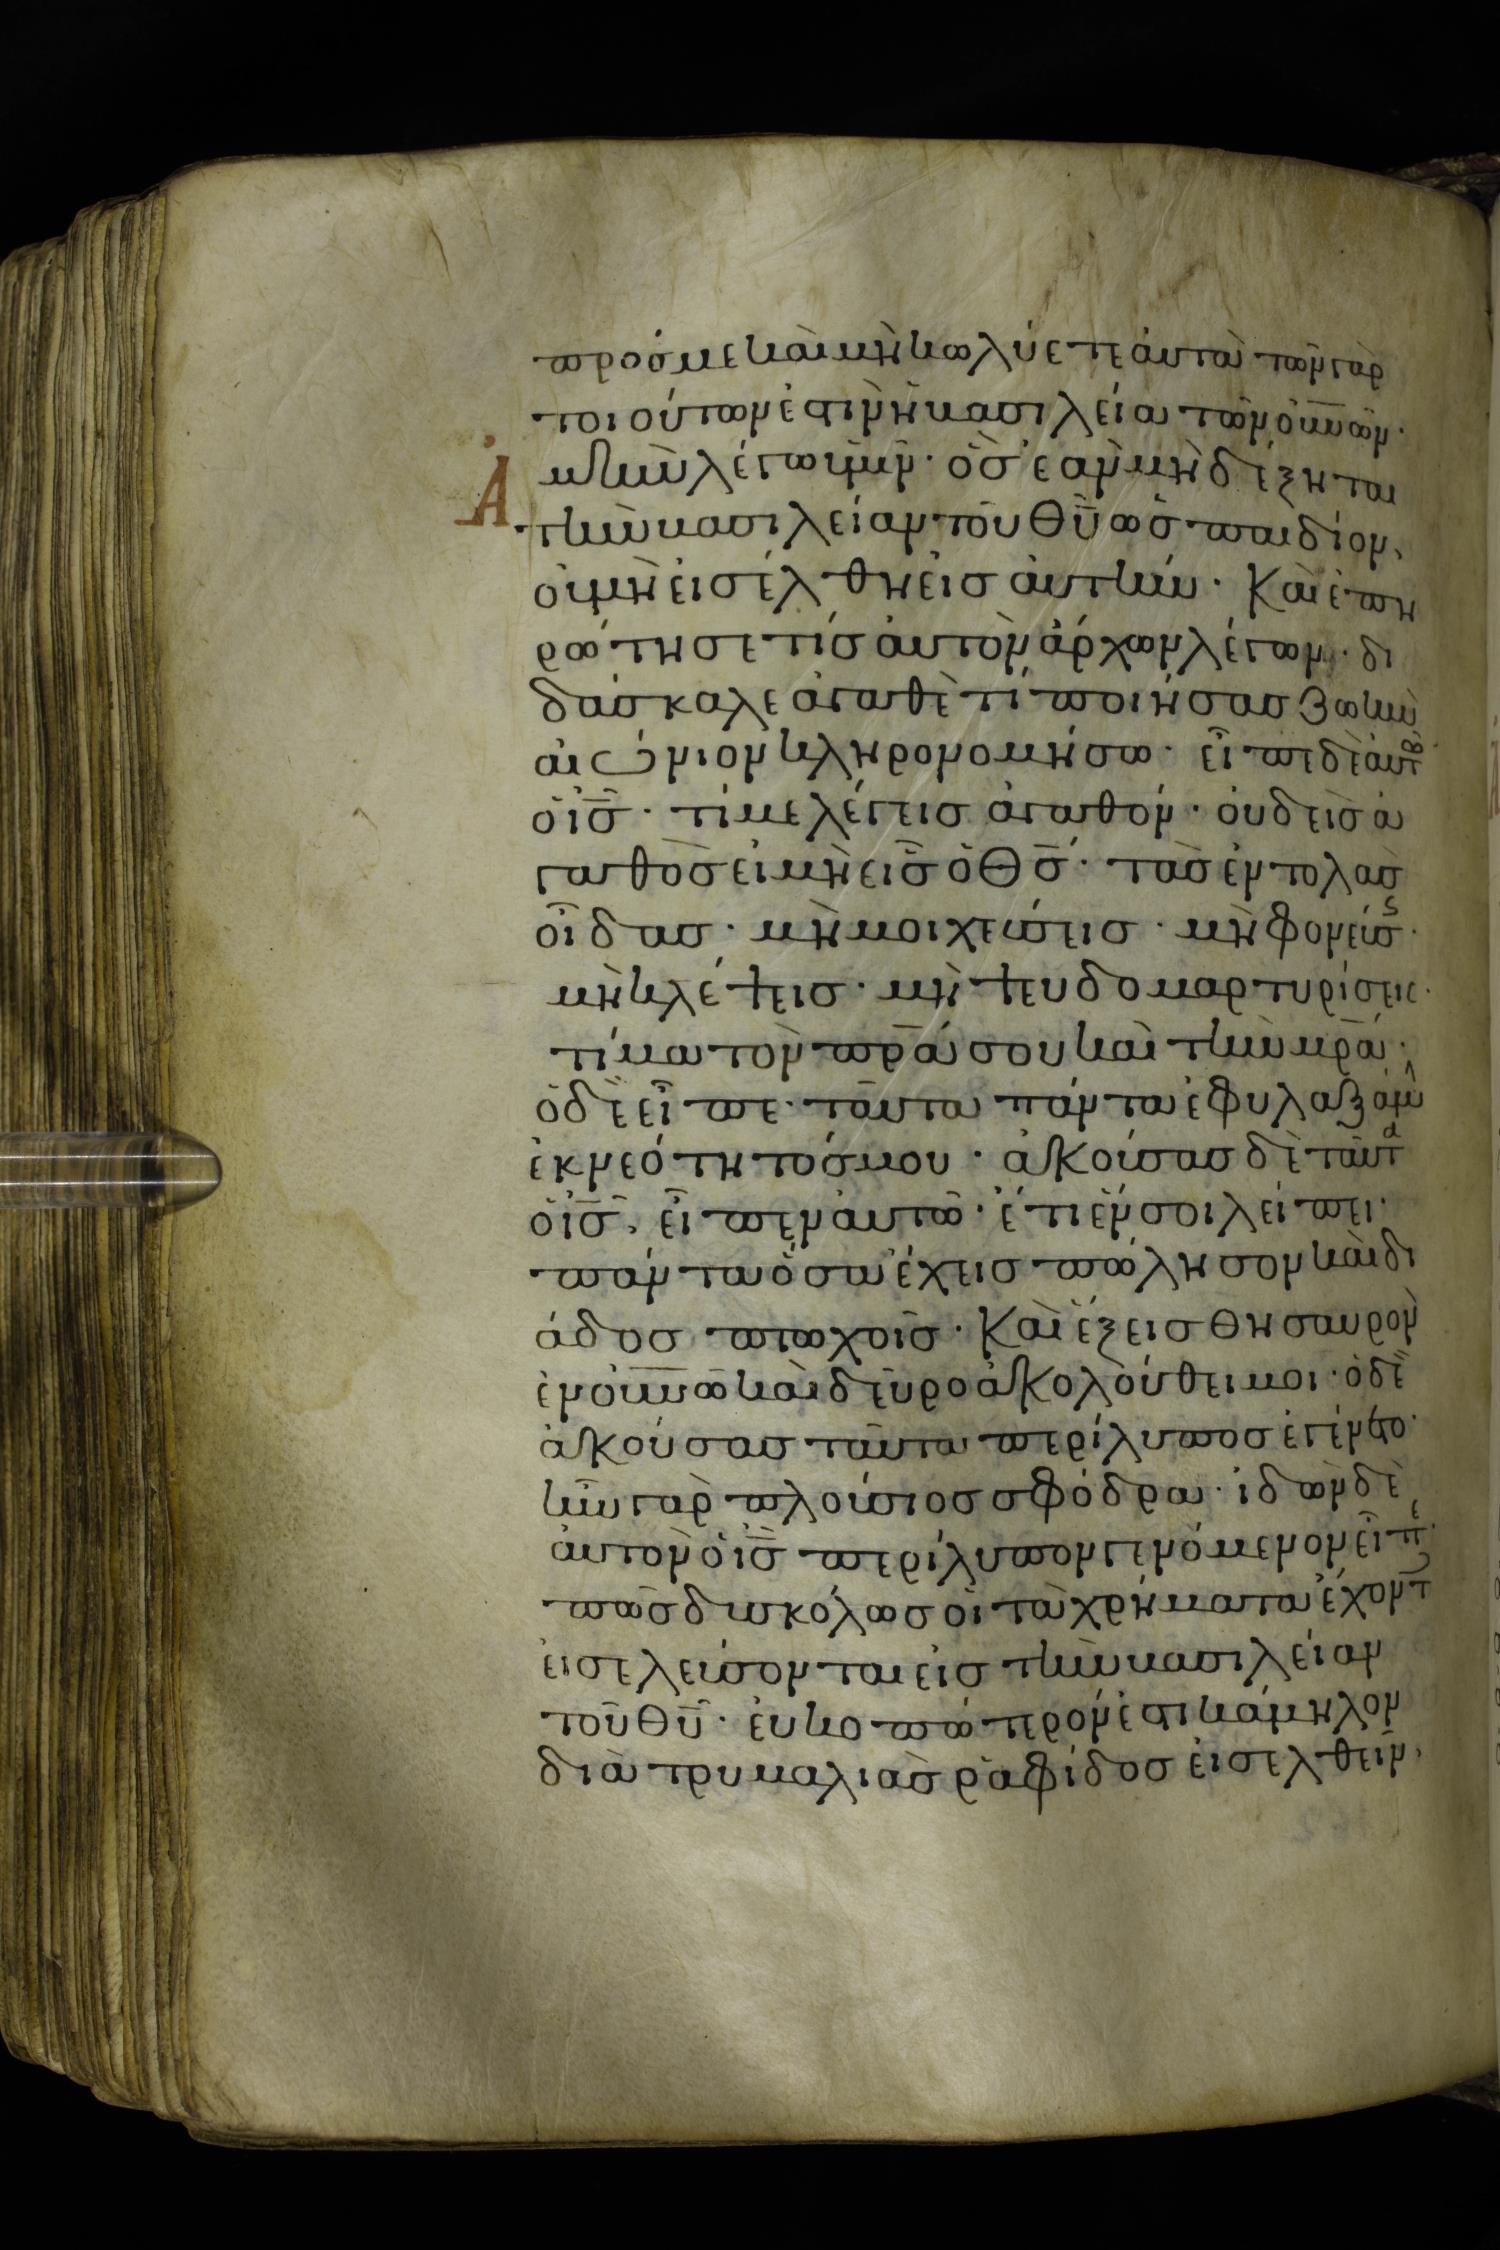 πρόσ με καὶ μὴ κωλύετε ἀυτὰ· τῶν γὰρ
τοιούτων ἐστὶν ἡ βασιλεία τῶν ὀυ̅νῶν·
Ἀμὴν λέγω ὑμῖν· ὃσ ἐὰν μὴ δέξηται
τὴν βασιλείαν τοῦ Θυ̅ ὡσ παιδίον,
ὀυ μὴ ἐισέλθη ἐισ ἀυτήν· Καὶ ἐπη
ρώτησέ τίσ ἀυτὸν ἄρχων λέγων· δι
δάσκαλε ἀγαθὲ τί ποιήσασ ζωὴν
αἰώνιον κληρονομήσω· εἶπε δὲ ἀυτῶ
ὁ ισ̅· τί με λέγεισ ἀγαθόν· ὀυδεὶσ ἀ
γαθὸσ εἰ μὴ εἷσ ὁ Θσ̅· τὰσ ἐντολὰσ
οἶδασ· μὴ μοιχεύσεισ· μὴ φονεύσεισ·
μὴ κλέψεισ· μὴ ψευδομαρτυρίσεισ·
τίμα τὸν πρ̅α σου καὶ τὴν μρ̅α·
ὁ δὲ εἶπε· ταῦτα πάντα ἐφυλαξάμην
ἐκ νεότητόσ μου· ἀκούσασ δὲ ταῦτα
ὁ ισ̅, εἶπεν ἀυτῶ· ἔτι ἕν σοι λείπει·
πάντα ὅσα ἔχεισ πώλησον καὶ δι
άδοσ πτωχοῖσ· Καὶ ἕξεισ θησαυρὸν
ἐν ὀυ̅νῶ καὶ δεῦρο ἀκολούθει μοι· ὁ δὲ
ἀκούσασ ταῦτα περίλυποσ ἐγένετο·
ἦν γὰρ πλούσιοσ σφόδρα· ἰδὼν δὲ
ἀυτὸν ὁ ισ̅ περίλυπον γενόμενον εἶπε·
πῶσ δυσκόλωσ οἱ τὰ χρήματα ἔχοντεσ
ἐισελεύσονται ἐισ τὴν βασιλείαν
τοῦ Θυ̅· ἐυκοπώτερόν ἐστι κάμηλον
διὰ τρυμαλιᾶσ ῥαφίδοσ ἐισελθεῖν,